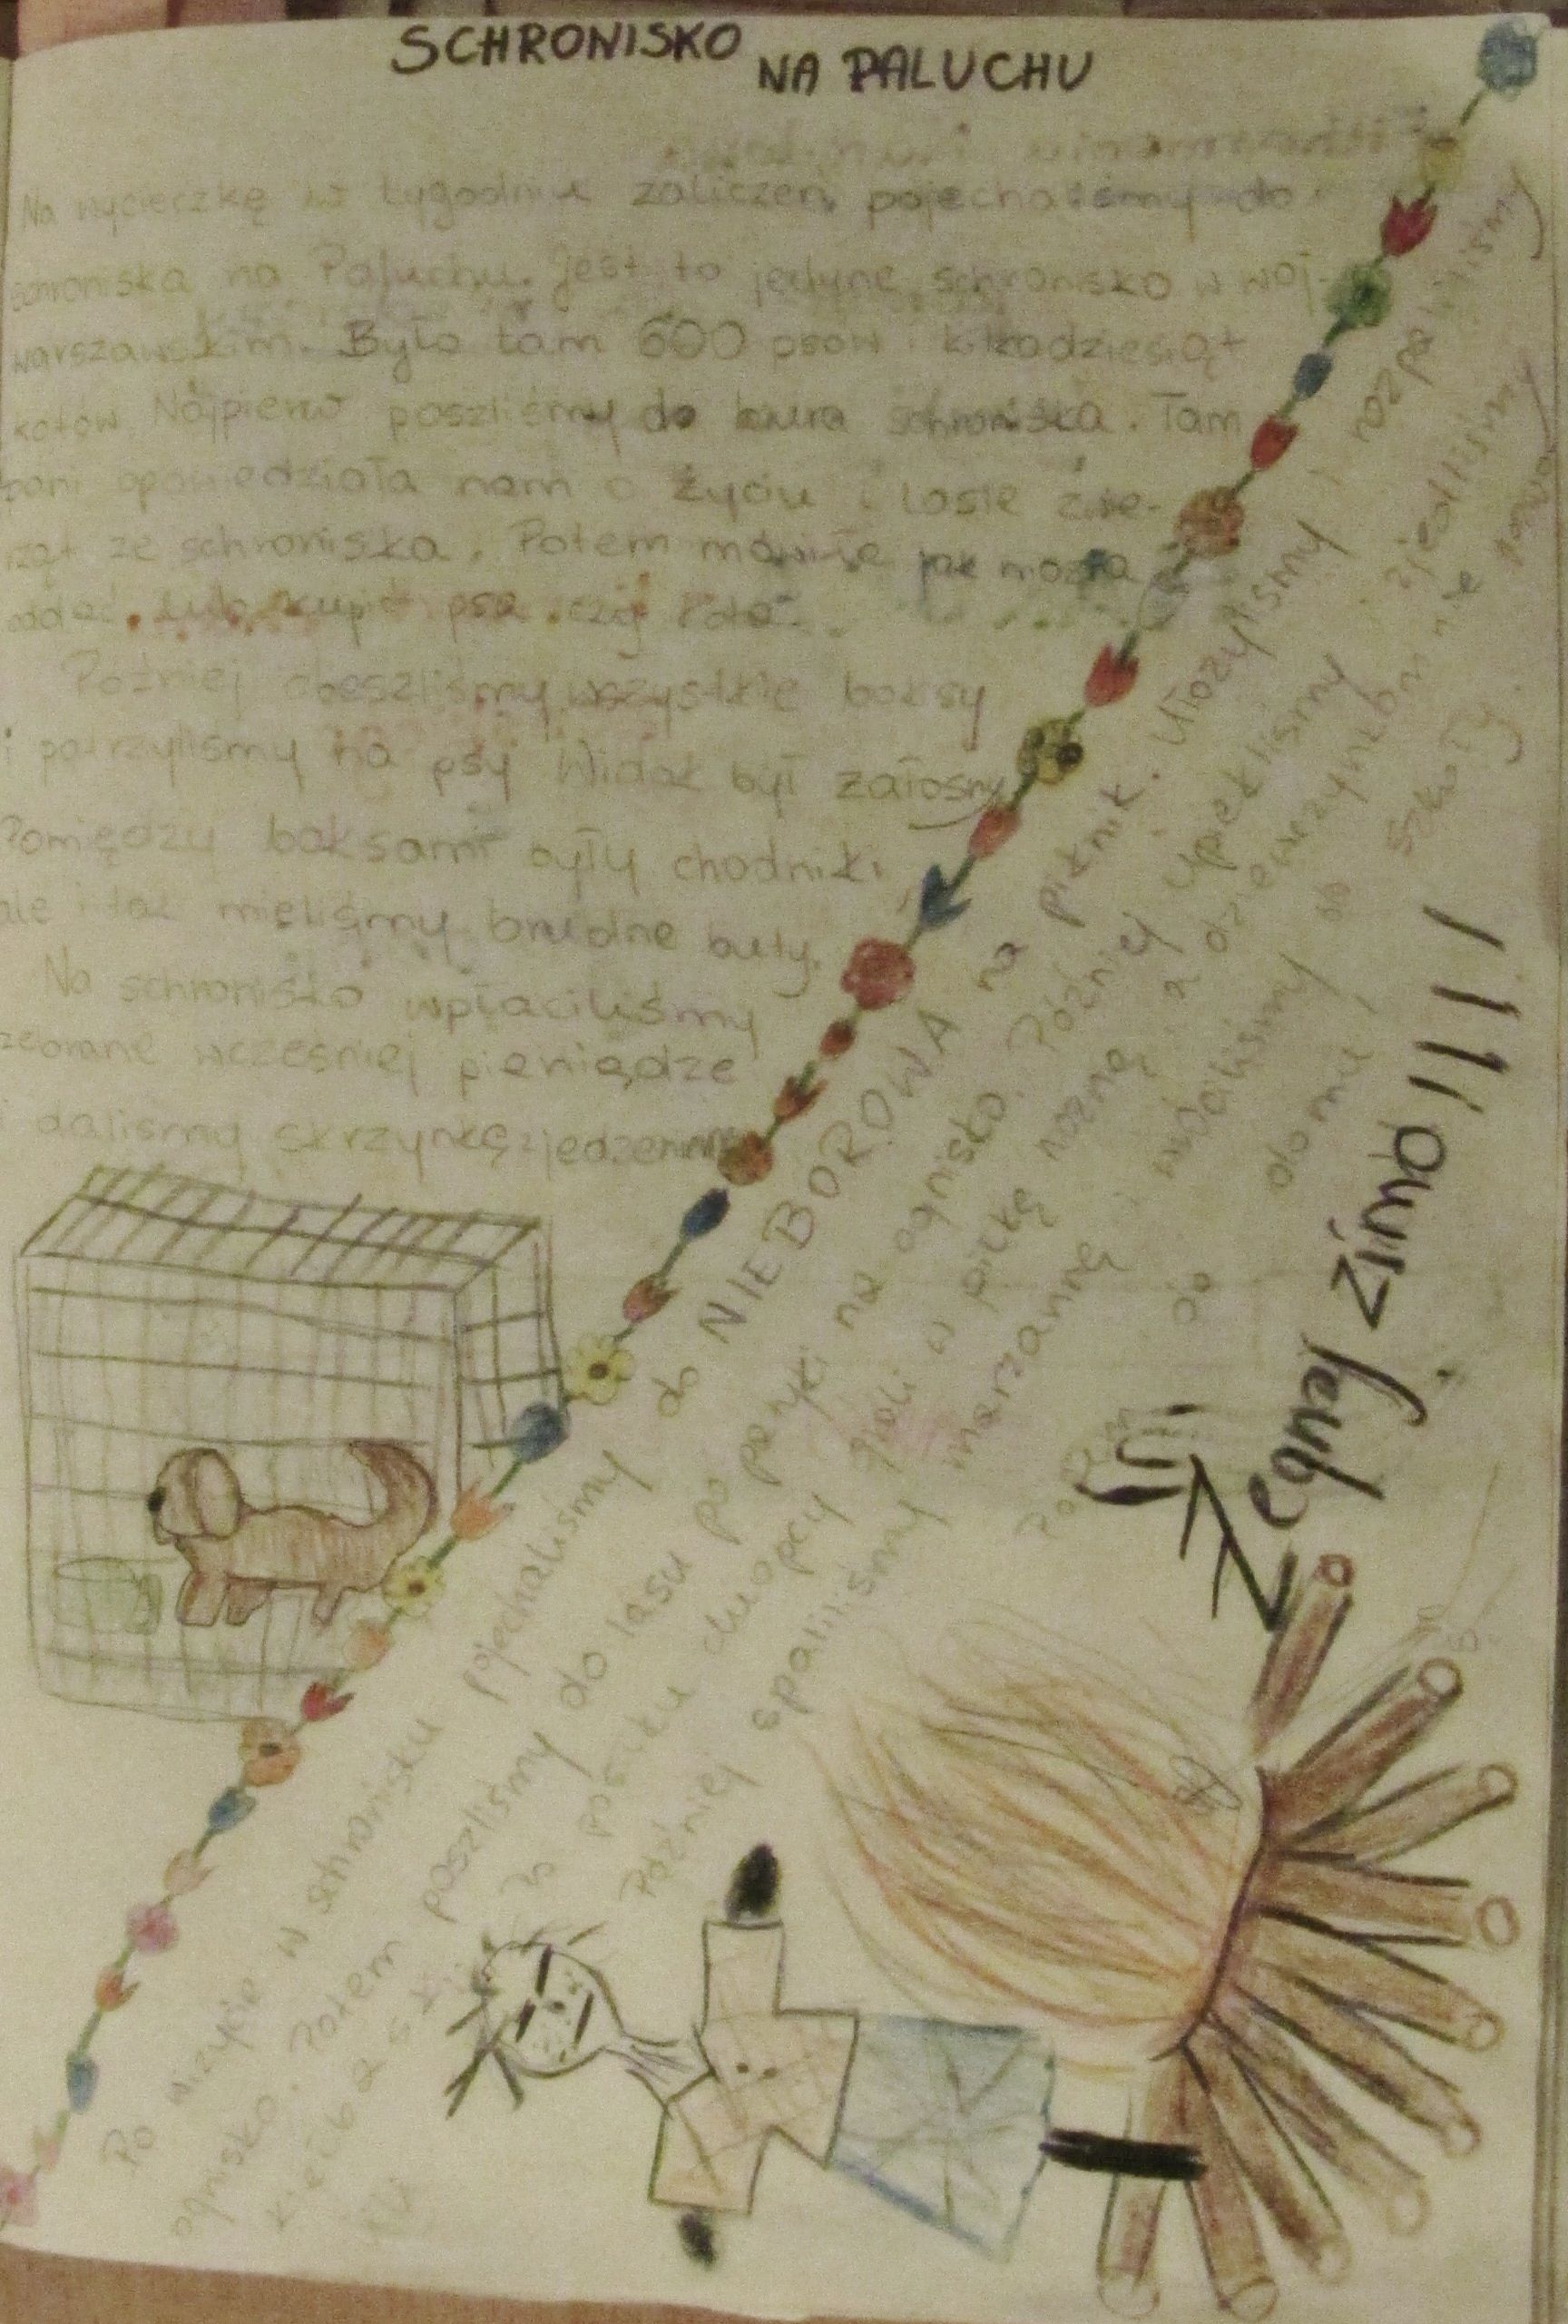 SCHRONISKO NA PALUCHU
Na wycieczkę w tygodniu zaliczeń pojechaliśmy do
schroniska na Paluchu. Jest to jedyne schronisko w woj.
warszawskim. Było tam 600 psów i kilkadziesiąt
kotów. Najpierw poszliśmy do biura schroniska. Tam
pani opowiedziała nam o życiu i losie zwie-
rząt ze schroniska. Potem mówiła jak można
oddać lub kupić psa czy kota.
Później obeszliśmy wszystkie boksy
i patrzyliśmy na psy. Widok był żałosny
Pomiędzy boksami były chodniki,
ale i tak mieliśmy brudne buty.
Na schronisko wpłaciliśmy
zebrane wcześniej pieniądze
i daliśmy skrzynkę z jedzeniem
Po wizycie w schronisku pojechaliśmy do NIEBOROWA na piknik. Ułożyliśmy i rozpaliliśmy
ognisko. Potem poszliśmy do lasu po patyki na ognisko. Później upiekliśmy i zjedliśmy
posiłku chłopcy grali w piłkę nożną, a dziewczynkom nie
Później spaliliśmy marzannę i wróciliśmy do szkoły.
Potem do domu
Żegnaj zimo!!!!